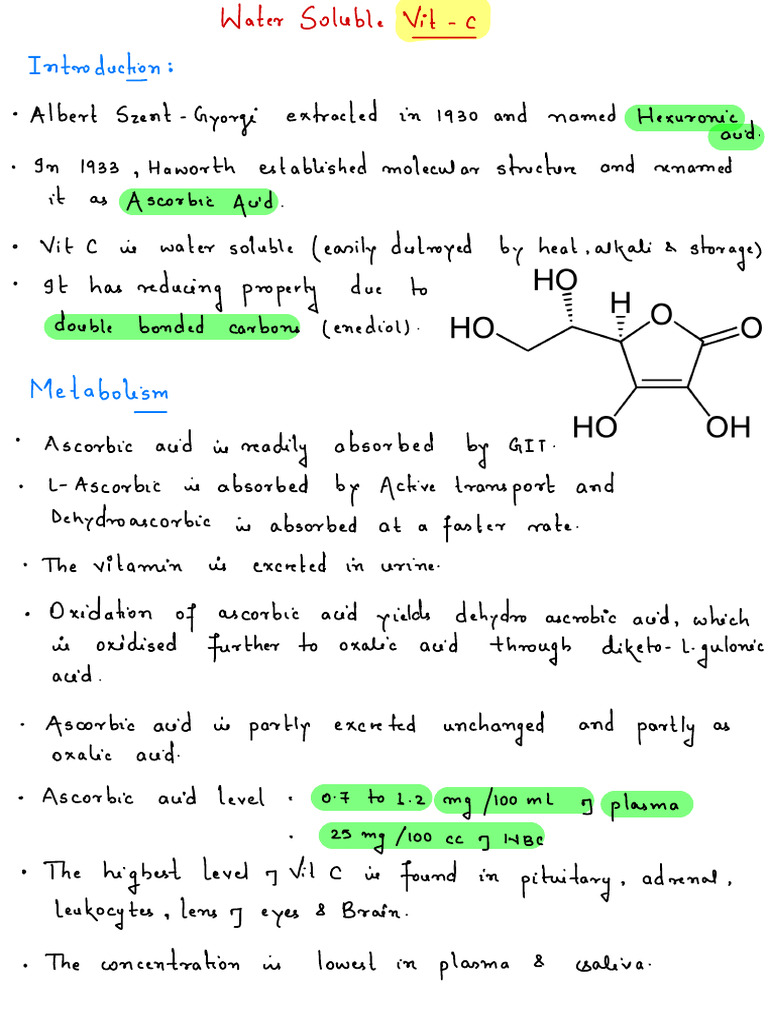 Water Soluble Vit - C
Introduction:
• Albert Szent-Gyorgi extracted in 1930 and named Hexuronic
acid.
• In 1933, Haworth established molecular structure and renamed
it as Ascorbic Acid.
• Vit C is water soluble (easily destroyed by heat, alkali & storage)
• It has reducing property due to
double bonded carbons (enediol).
HO
H
O
O
HO
HO
OH
Metabolism
• Ascorbic acid is readily absorbed by GIT.
• L-Ascorbic is absorbed by Active transport and
Dehydroascorbic is absorbed at a faster rate.
• The vitamin is excreted in urine.
• Oxidation of ascorbic acid yields dehydro ascrobic acid, which
is oxidised further to oxalic acid through diketo-L-gulonic
acid.
• Ascorbic acid is partly excreted unchanged and partly as
oxalic acid.
• Ascorbic acid level • 0.7 to 1.2 mg/100 mL of plasma
• 25 mg/100 cc of WBC
• The highest level of Vit C is found in pituitary, adrenal,
leukocytes, lens of eyes & Brain.
• The concentration is lowest in plasma & saliva.